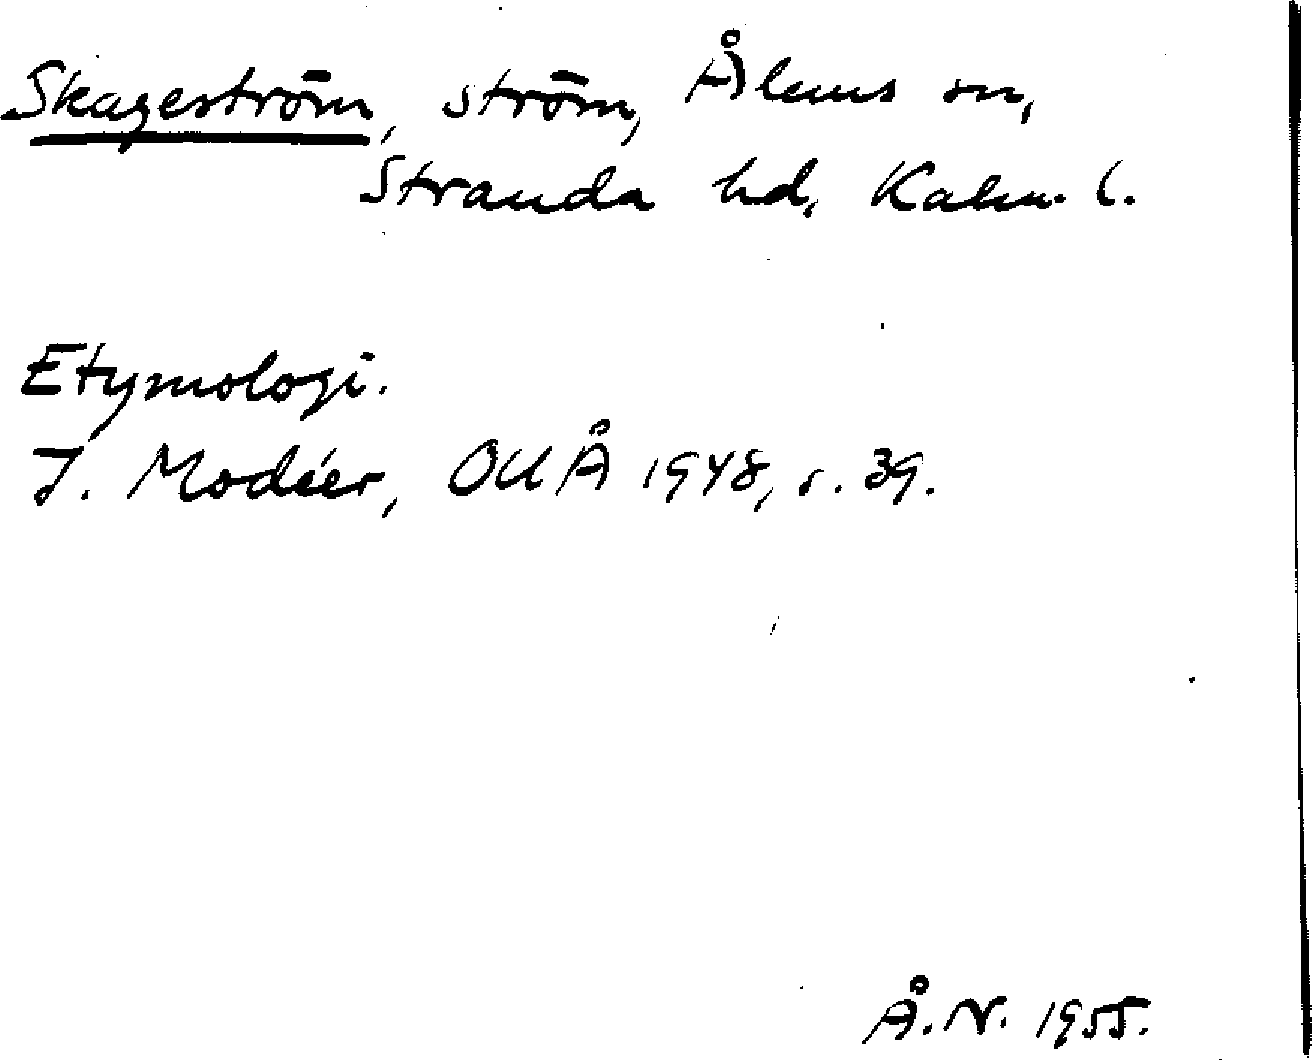 Skageström, ström, Ålems sn,
Stranda hd, Kalm. l.
Etymologi.
I. Modéer, OUÅ 1948, s. 39.
Å. N. 1955.